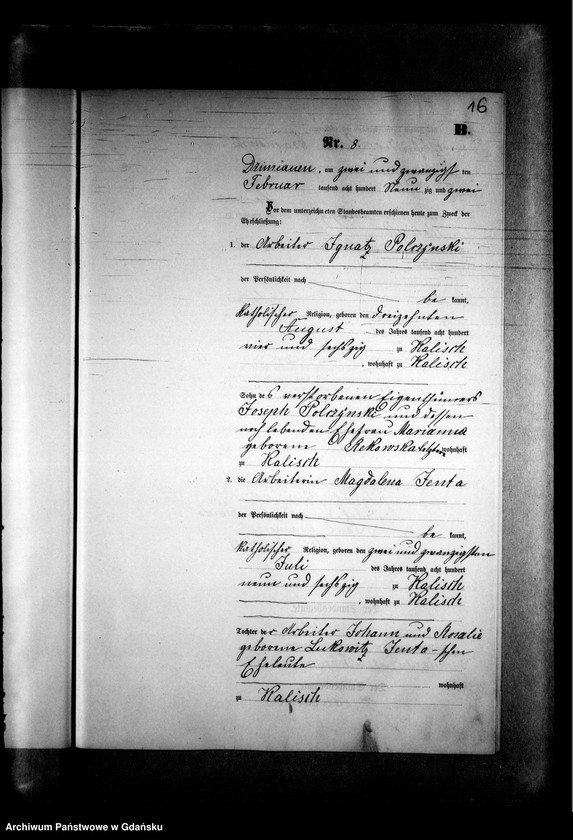 16
B.
Nr. 8.
Dzimianen, am zwei und zwanzigst ten
Februar tausend acht hundert Neun zig und zwei
Vor dem unterzeichneten Standesbeamten erschienen heute zum Zweck der
Eheschließung:
1. der Arbeiter Ignatz Polczynski
der Persönlichkeit nach
be kannt,
katholischer Religion, geboren den dreizehnten
August des Jahres tausend acht hundert
vier und sechszig zu Kalisch
, wohnhaft zu Kalisch
Sohn des verstorbenen Eigenthümers
Joseph Polczynski und dessen
noch lebenden Ehefrau Marianna
geborene Rekowska letztere wohnhaft
zu Kalisch
2. die Arbeiterin Magdalena Jenta
der Persönlichkeit nach
be kannt,
katholischer Religion, geboren den zwei und zwanzigsten
Juli des Jahres tausend acht hundert
neun und sechszig zu Kalisch
, wohnhaft zu Kalisch
Tochter der Arbeiter Johann und Rosalie
geborene Lukowitz Jenta-schen
Eheleute
wohnhaft
zu Kalisch
Archiwum Państwowe w Gdańsku